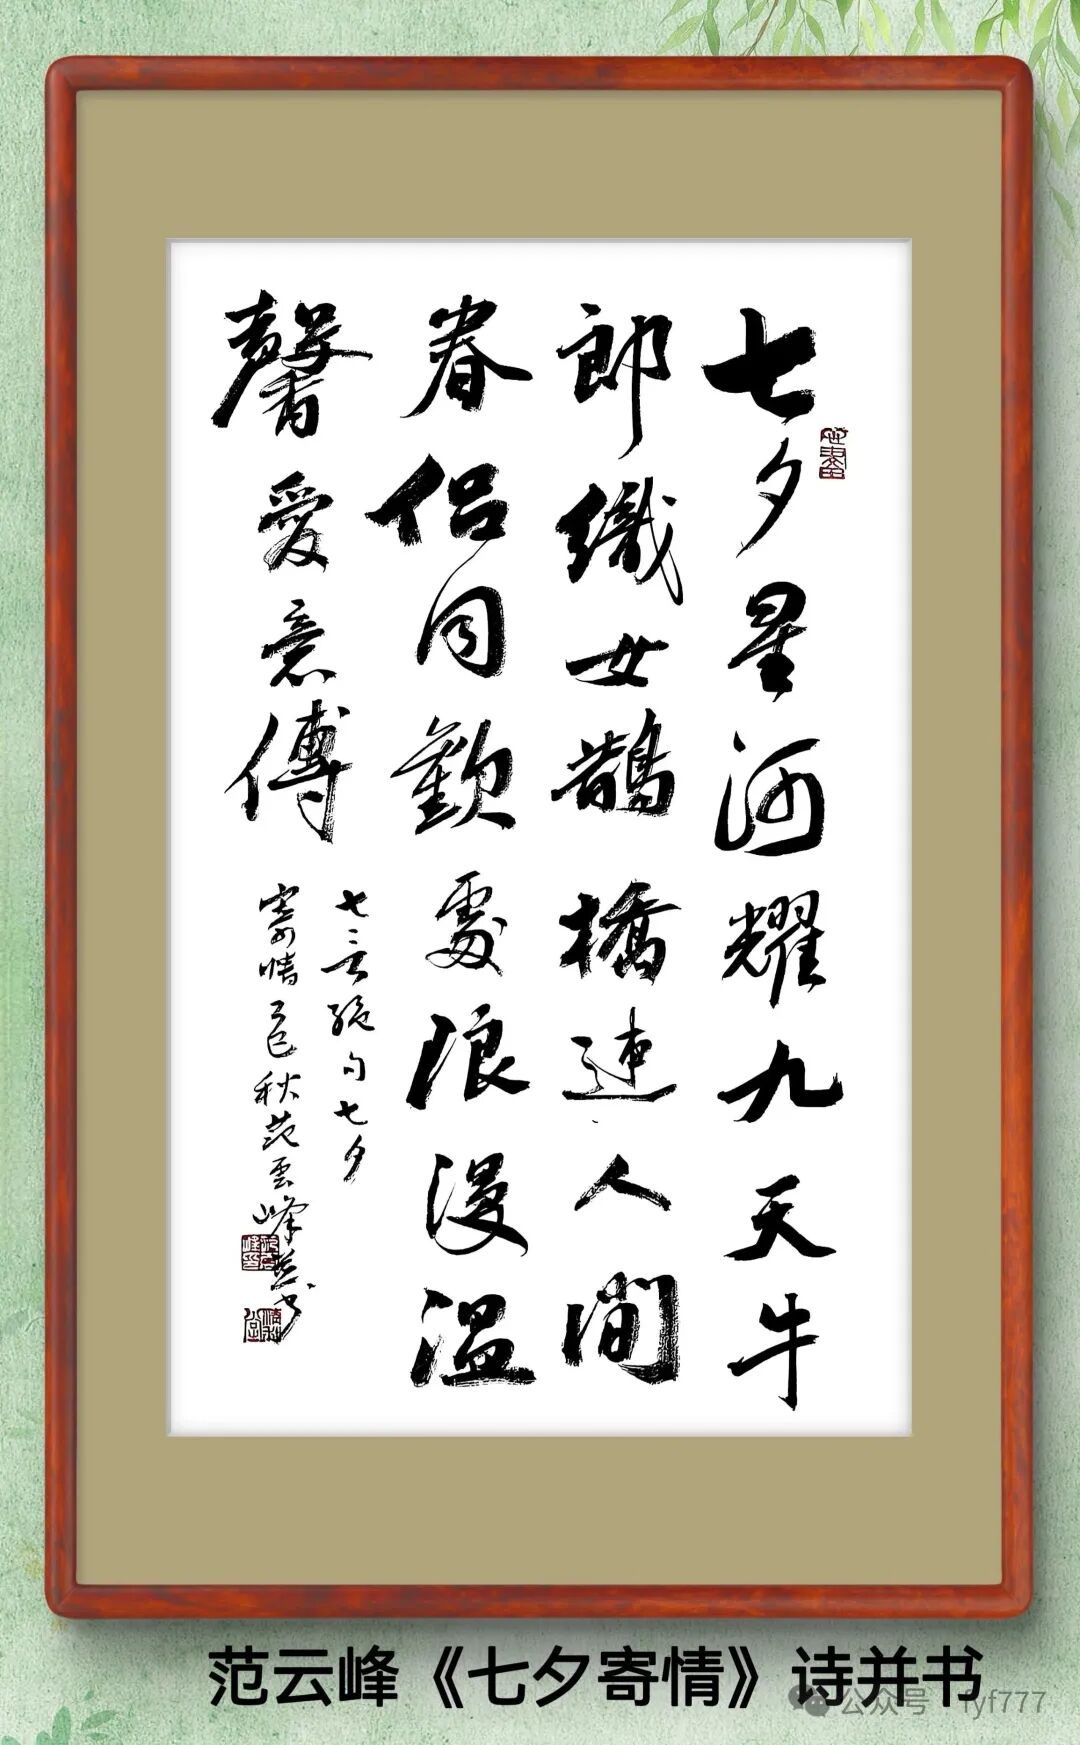 七夕星河耀九天牛
郎織女鵲橋連人間
眷侶同歡處浪漫溫
馨愛意傳
七言絕句七夕
寄情乙巳秋范雲峰並書
范云峰《七夕寄情》诗并书
公众号 · fyf777